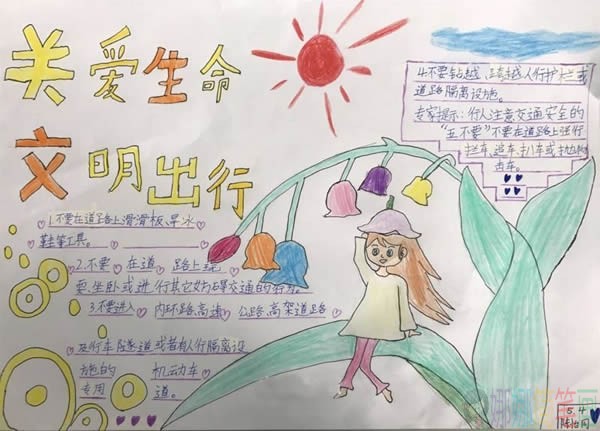 关爱生命
文明出行
1.不要在道路上滑滑板、旱冰
鞋等工具。
2.不要在道路上玩
耍、坐卧或进行其它妨碍交通的行为。
3.不要进入内环路、高速公路、高架道路
及行车隧道或者有人行隔离设
施的机动车
专用道。
4.不要钻越、跨越人行护栏或
道路隔离设施。
专家提示:行人注意交通安全的
“五不要”不要在道路上强行
拦车、追车、扒车或抛物
击车。
5.4